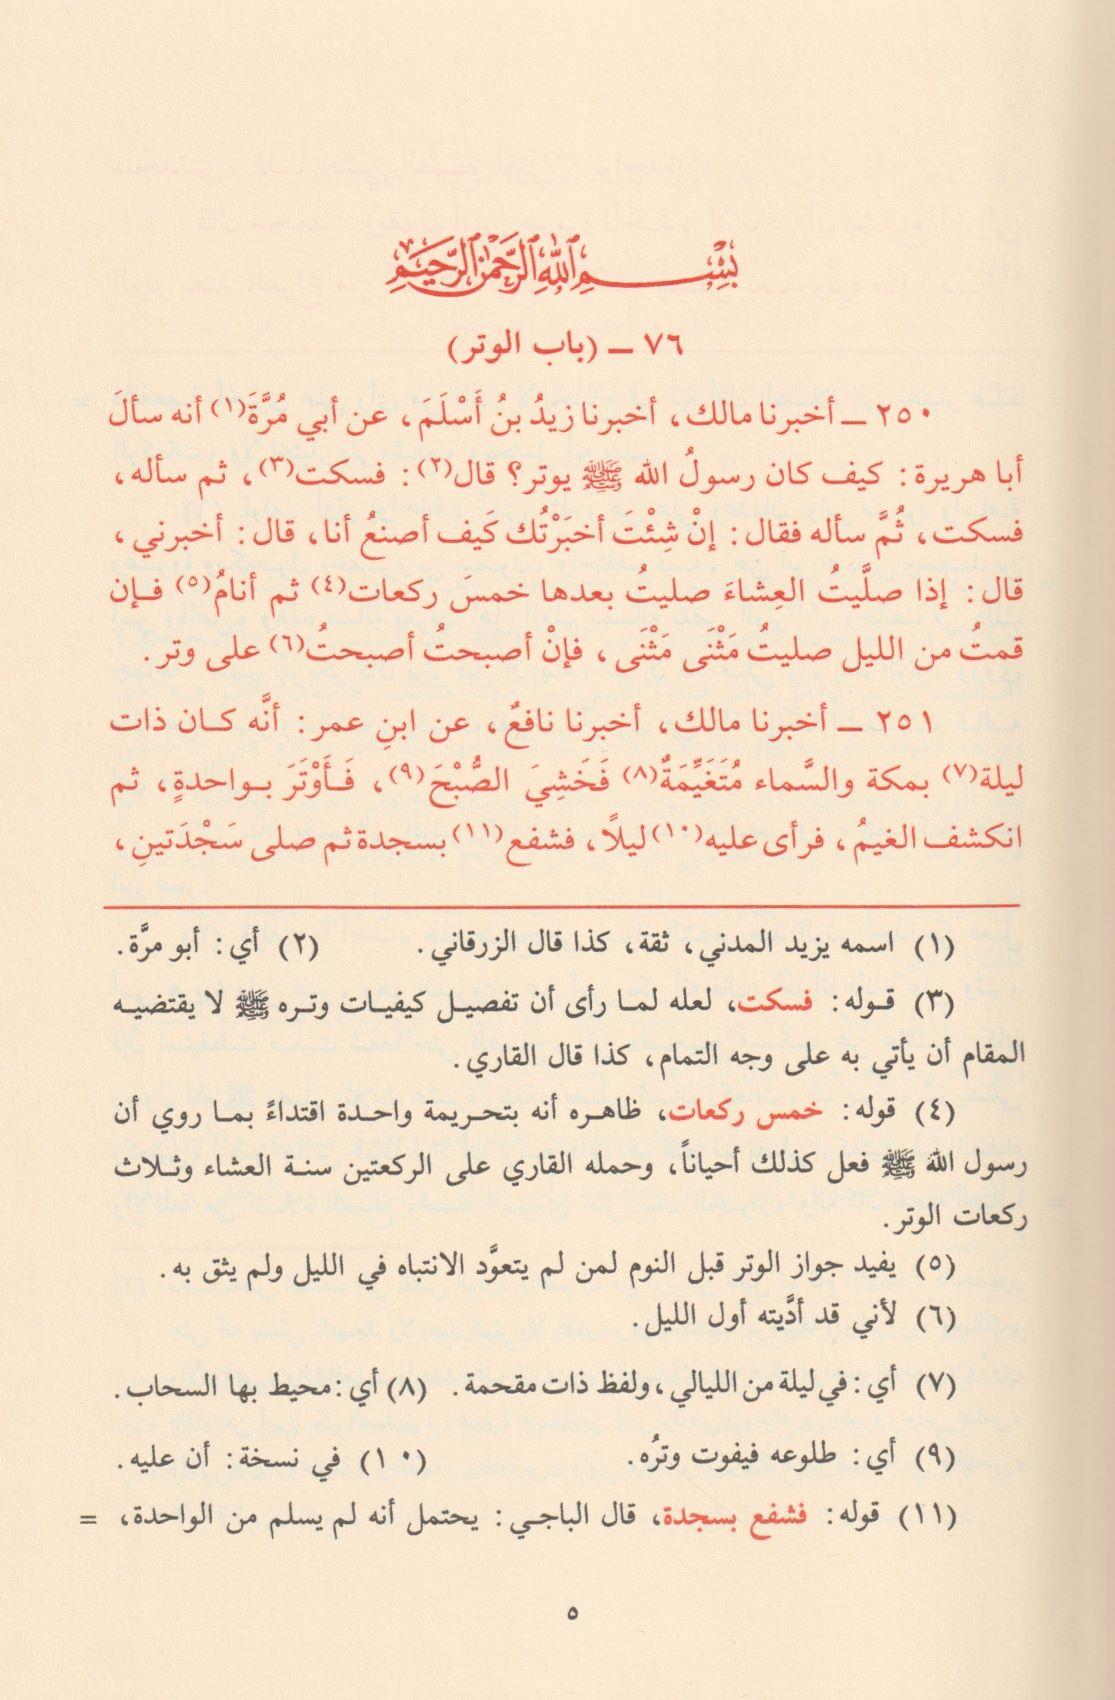 بِسْمِ اللهِ الرَّحْمٰنِ الرَّحِيْمِ
٧٦ ــ (باب الوتر)
٢٥٠ ــ أخبرنا مالك، أخبرنا زيدُ بنُ أَسْلَمَ، عن أبي مُرَّةَ(١) أنه سألَ
أبا هريرة: كيف كان رسولُ الله ﷺ يوتر؟ قال(٢): فسكت(٣)، ثم سأله،
فسكت، ثُمَّ سأله فقال: إنْ شِئْتَ أخبَرْتُك كَيف أصنعُ أنا، قال: أخبرني،
قال: إذا صلَّيتُ العِشاءَ صليتُ بعدها خمسَ ركعات(٤) ثم أنامُ(٥) فإن
قمتُ من الليل صليتُ مَثْنَى مَثْنَى، فإنْ أصبحتُ أصبحتُ(٦) على وتر.
٢٥١ ــ أخبرنا مالك، أخبرنا نافعٌ، عن ابنِ عمر: أنَّه كان ذات
ليلة(٧) بمكة والسَّماء مُتَغَيِّمَةٌ(٨) فَخَشِيَ الصُّبْحَ(٩)، فَأَوْتَرَ بواحدةٍ، ثم
انكشف الغيمُ، فرأى عليه(١٠) ليلًا، فشفع(١١) بسجدة ثم صلى سَجْدَتينِ،
(١) اسمه يزيد المدني، ثقة، كذا قال الزرقاني. (٢) أي: أبو مرَّة.
(٣) قوله: فسكت، لعله لما رأى أن تفصيل كيفيات وتره ﷺ لا يقتضيه
المقام أن يأتي به على وجه التمام، كذا قال القاري.
(٤) قوله: خمس ركعات، ظاهره أنه بتحريمة واحدة اقتداءً بما روي أن
رسول الله ﷺ فعل كذلك أحياناً، وحمله القاري على الركعتين سنة العشاء وثلاث
ركعات الوتر.
(٥) يفيد جواز الوتر قبل النوم لمن لم يتعوَّد الانتباه في الليل ولم يثق به.
(٦) لأني قد أدَّيته أول الليل.
(٧) أي: في ليلة من الليالي، ولفظ ذات مقحمة. (٨) أي: محيط بها السحاب.
(٩) أي: طلوعه فيفوت وترُه. (١٠) في نسخة: أن عليه.
(١١) قوله: فشفع بسجدة، قال الباجي: يحتمل أنه لم يسلم من الواحدة، =
٥